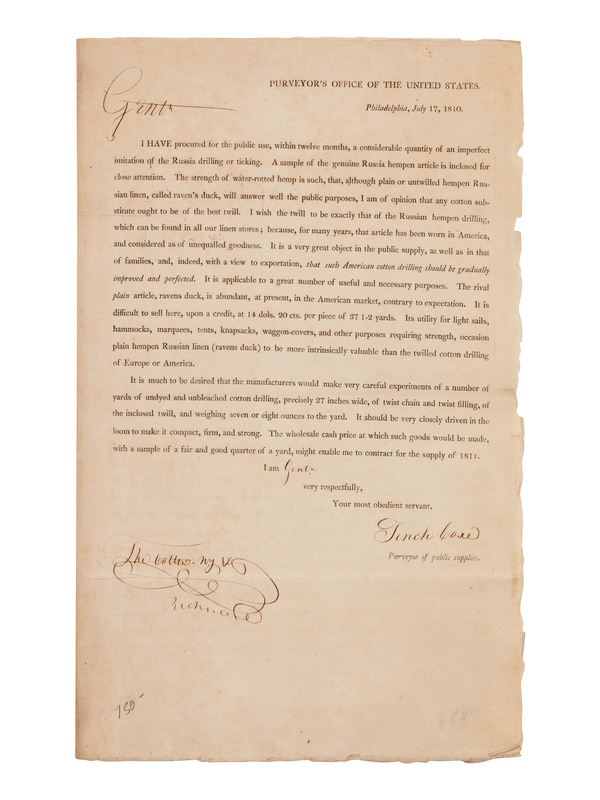 PURVEYOR'S OFFICE OF THE UNITED STATES.
Philadelphia, July 17, 1810.
Gent
I HAVE procured for the public use, within twelve months, a considerable quantity of an imperfect
imitation of the Russia drilling or ticking. A sample of the genuine Russia hempen article is inclosed for
close attention. The strength of water-rotted hemp is such, that, although plain or untwilled hempen Rus-
sian linen, called raven's duck, will answer well the public purposes, I am of opinion that any cotton sub-
stitute ought to be of the best twill. I wish the twill to be exactly that of the Russian hempen drilling,
which can be found in all our linen stores; because, for many years, that article has been worn in America,
and considered as of unequalled goodness. It is a very great object in the public supply, as well as in that
of families, and, indeed, with a view to exportation, that such American cotton drilling should be gradually
improved and perfected. It is applicable to a great number of useful and necessary purposes. The rival
plain article, ravens duck, is abundant, at present, in the American market, contrary to expectation. It is
difficult to sell here, upon a credit, at 14 dols. 20 cts. per piece of 37 1-2 yards. Its utility for light sails,
hammocks, marquees, tents, knapsacks, waggon-covers, and other purposes requiring strength, occasion
plain hempen Russian linen (ravens duck) to be more intrinsically valuable than the twilled cotton drilling
of Europe or America.
It is much to be desired that the manufacturers would make very careful experiments of a number of
yards of undyed and unbleached cotton drilling, precisely 27 inches wide, of twist chain and twist filling, of
the inclosed twill, and weighing seven or eight ounces to the yard. It should be very closely driven in the
loom to make it compact, firm, and strong. The wholesale cash price at which such goods would be made,
with a sample of a fair and good quarter of a yard, might enable me to contract for the supply of 1811.
I am Gent
very respectfully,
Your most obedient servant,
Tench Coxe
Purveyor of public supplies.
The Cotton
Richmond
150